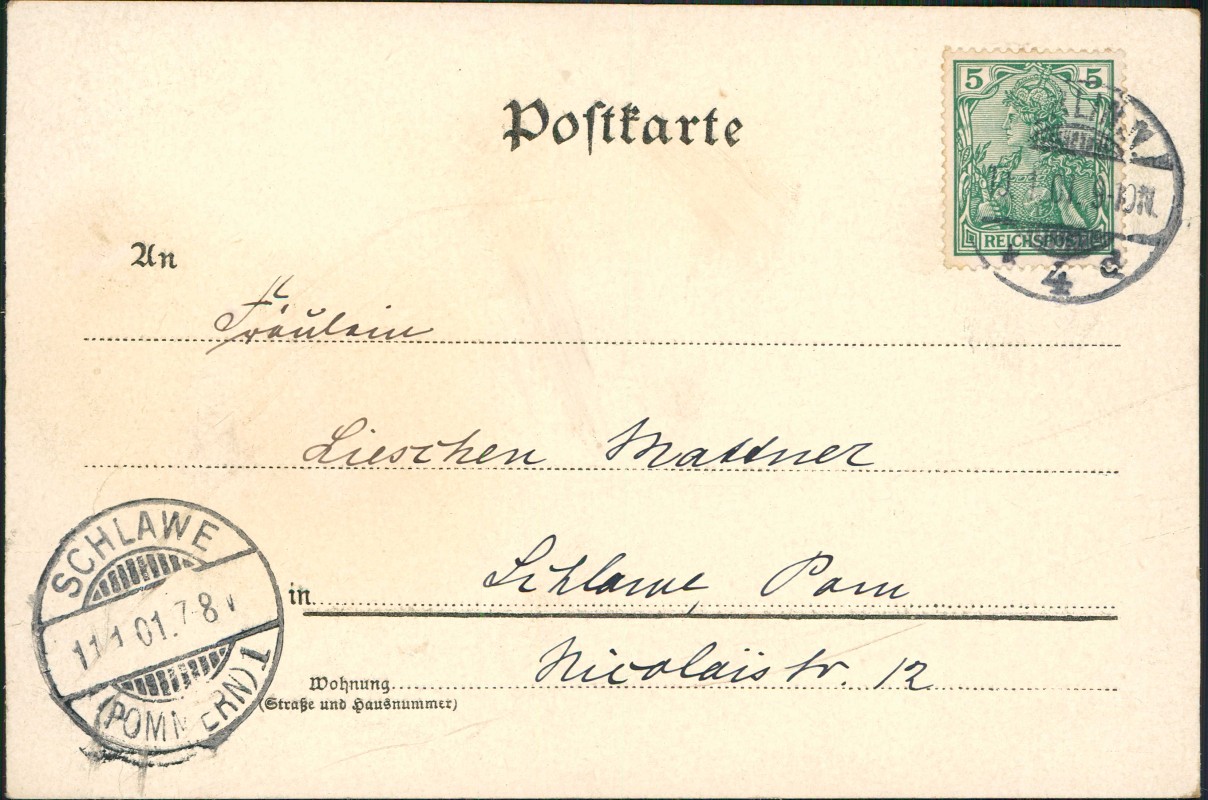 Postkarte
5 5
REICHSPOST
9-10N.
4 a
An
Fräulein
Lieschen Mattner
in Schlawe, Pom
Nicolaistr. 12
Wohnung
(Straße und Hausnummer)
SCHLAWE
11.1.01.7-8V
(POMMERN)1